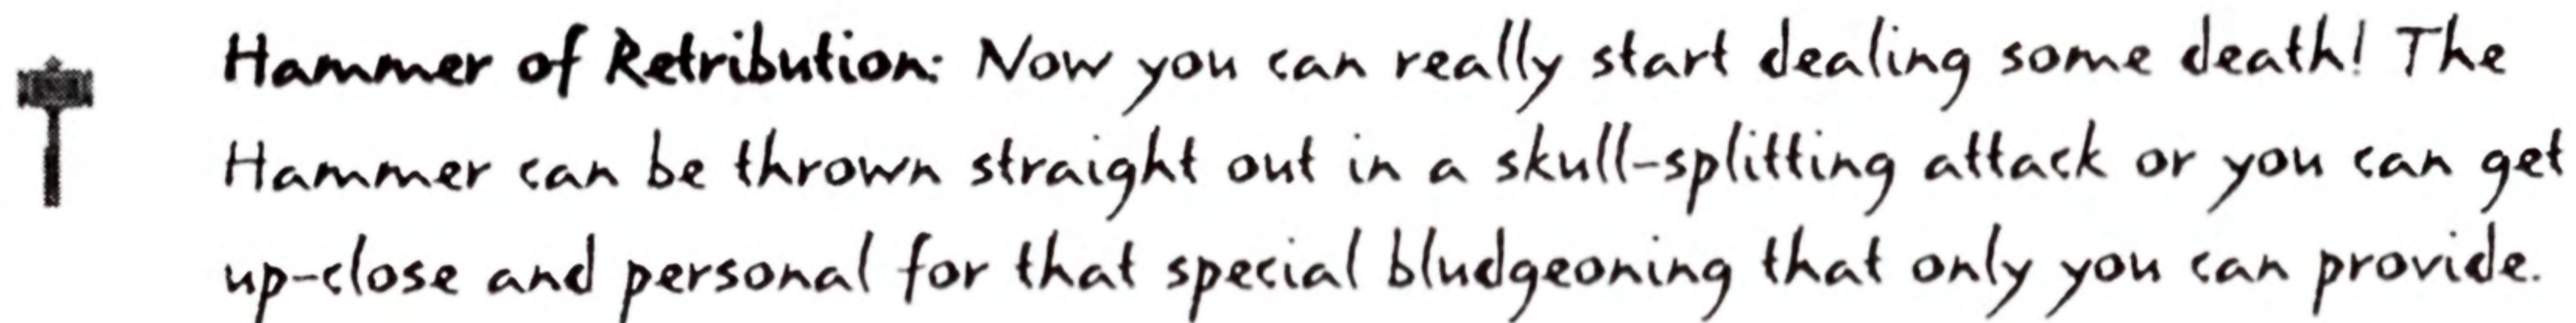 Hammer of Retribution: Now you can really start dealing some death! The
Hammer can be thrown straight out in a skull-splitting attack or you can get
up-close and personal for that special bludgeoning that only you can provide.